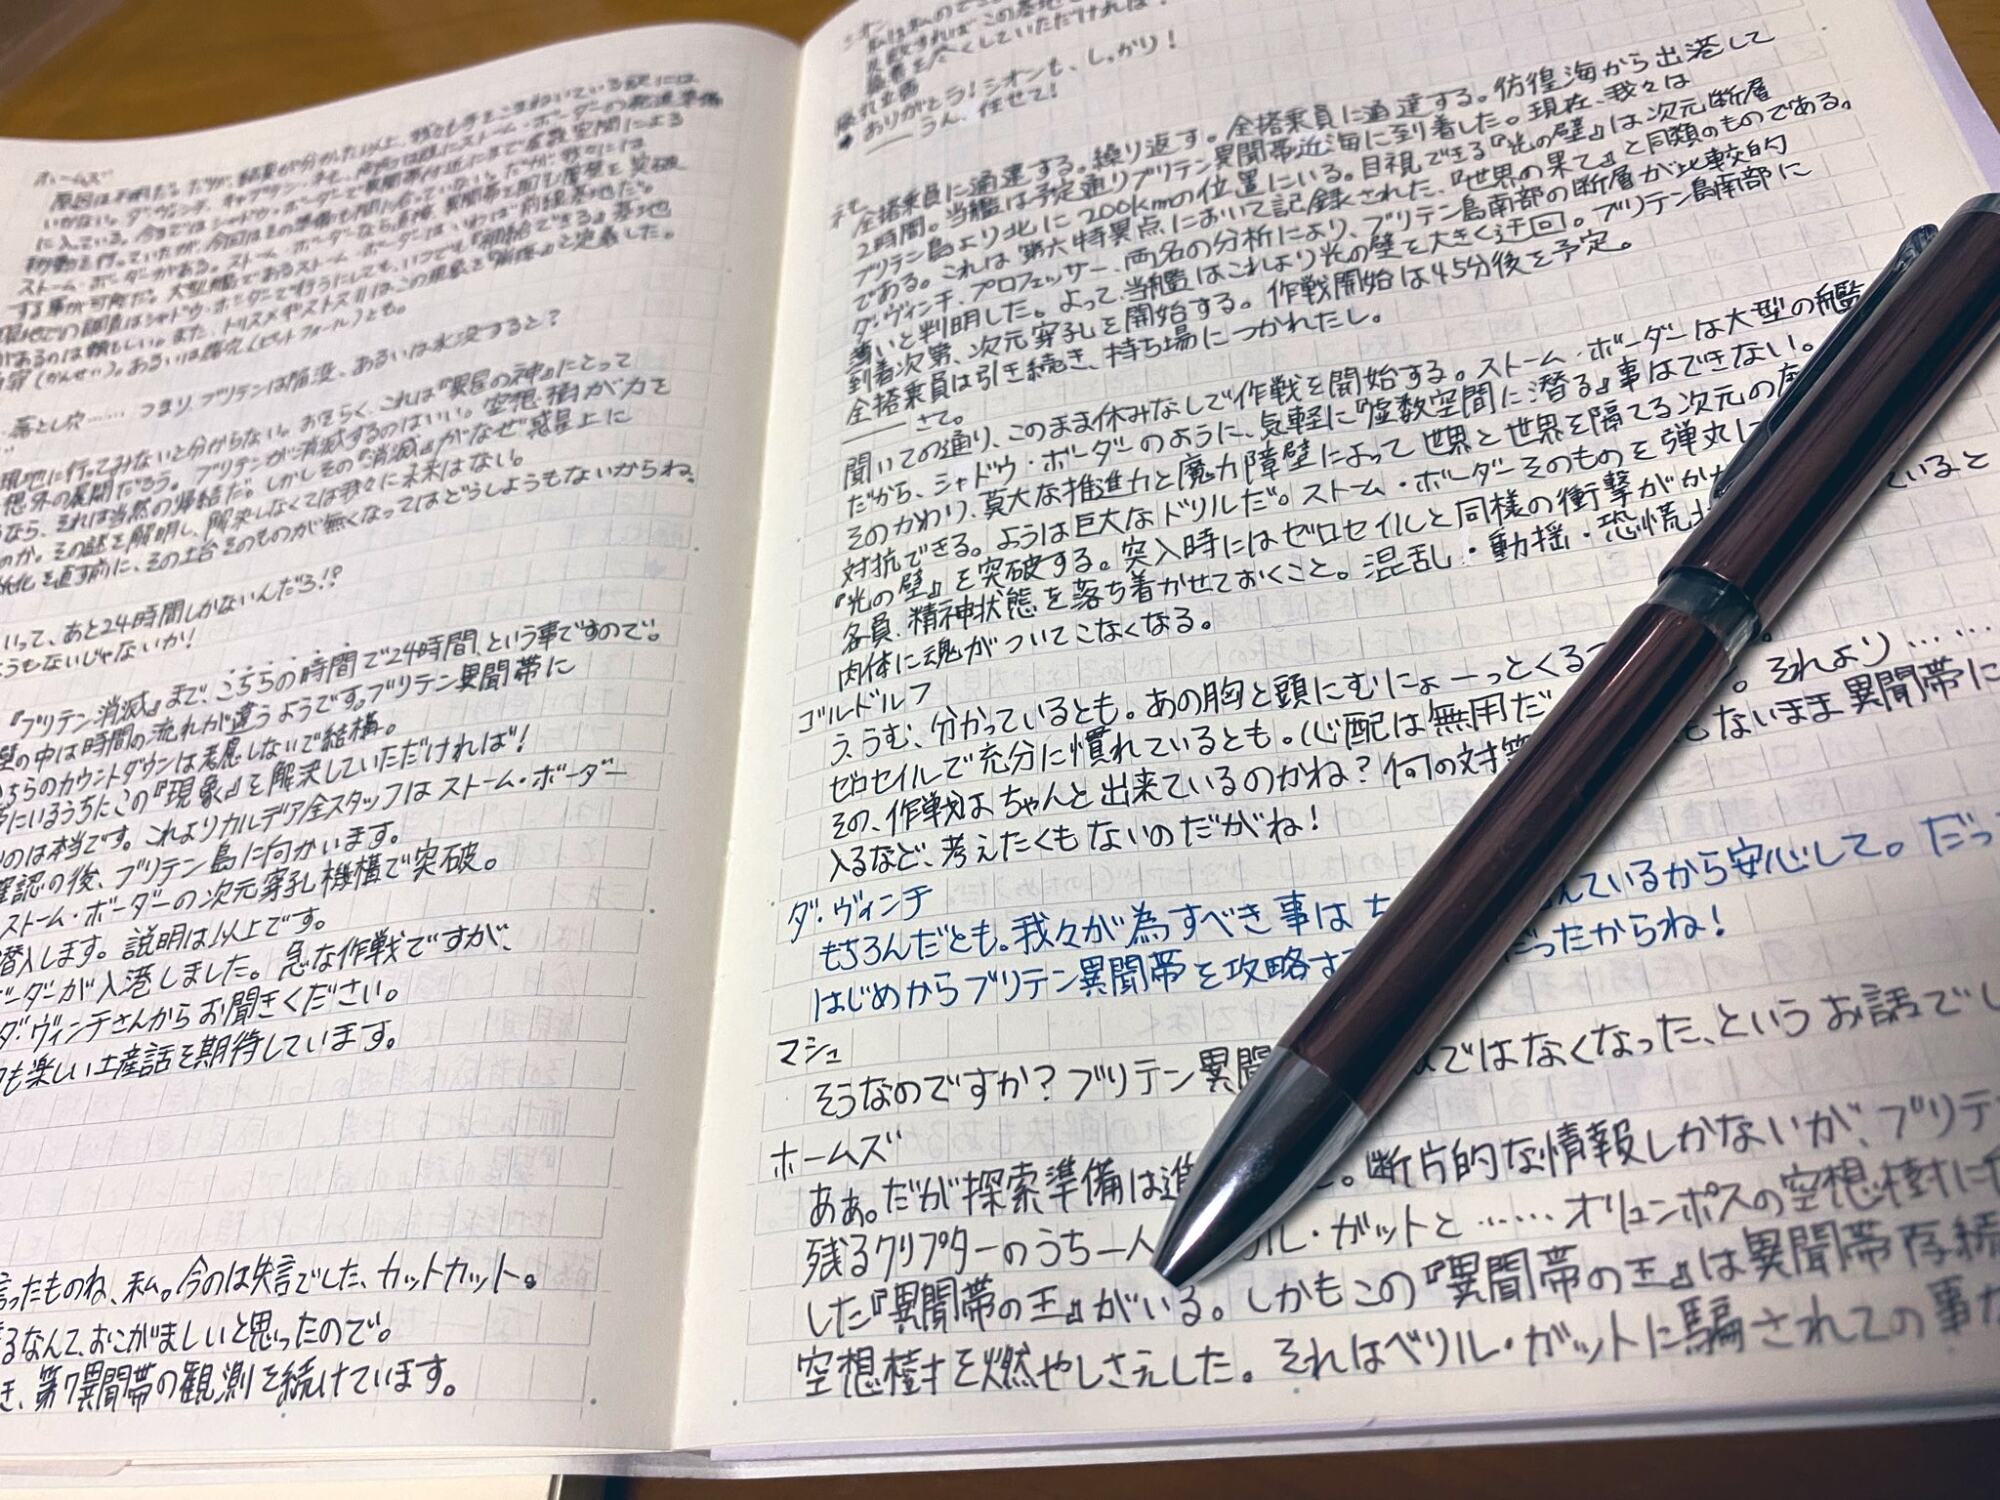 ホームズ
に入っている。今まではシャドウ・ボーダーで異聞帯付近にまで虚数空間による
ストーム・ボーダーがある。ストーム・ボーダーなら直接、異聞帯を囲む層壁を突破
する事が可能だ。大型艦であるストーム・ボーダーはいわば『前線基地』だ。
現地での調査はシャドウ・ボーダーで行うにしても、いつでも『補給できる』基地
があるのは頼もしい。また、トリスメギストスⅡはこの現象を『崩落』と定義した。
落とし穴……つまり、ブリテンは陥没、あるいは水没すると?
現地に行ってみないと分からない。おそらく、これは『異星の神』にとって
想外の展開だろう。ブリテンが消滅するのはいい。空想樹が力を
なら、それは当然の帰結だ。しかしその『消滅』がなぜ惑星上に
のか。その謎を解明し、解決しなくては我々に未来はない。
化を直す前に、その土台そのものが無くなってはどうしようもないからね。
いって、あと24時間しかないんだろ!?
ようもないじゃないか!
『ブリテン消滅』まで、こちらの時間で24時間、という事ですので。
壁の中は時間の流れが違うようです。ブリテン異聞帯に
ちらのカウントダウンは考慮しないで結構。
帯にいるうちにこの『現象』を解決していただければ!
のは本当です。これよりカルデア全スタッフはストーム・ボーダー
確認の後、ブリテン島に向かいます。
ストーム・ボーダーの次元穿孔機構で突破。
潜入します。説明は以上です。
ーダーが入港しました。急な作戦ですが、
ダ・ヴィンチさんからお聞きください。
も楽しい土産話を期待しています。
言ったものね、私。今のは失言でした、カットカット。
るなんて、おこがましいと思ったので。
き、第7異聞帯の観測を続けています。
シオン
ありがとう!シオンも、しっかり!
――うん、任せて!
ネモ
全搭乗員に通達する。繰り返す。全搭乗員に通達する。彷徨海から出港して
2時間。当艦は予定通りブリテン異聞帯近海に到着した。現在、我々は
ブリテン島より北に200kmの位置にいる。目視できる『光の壁』は次元断層
である。これは第六特異点において記録された、『世界の果て』と同類のものである。
ダ・ヴィンチ、プロフェッサー、両名の分析により、ブリテン島南部の断層が比較的
薄いと判明した。よって、当艦はこれより光の壁を大きく迂回。ブリテン島南部に
到着次第、次元穿孔を開始する。作戦開始は45分後を予定。
全搭乗員は引き続き、持ち場につかれたし。
――さて。
聞いての通り、このまま休みなしで作戦を開始する。ストーム・ボーダーは大型の艦
だから、シャドウ・ボーダーのように、気軽に『虚数空間に潜る』事はできない。
そのかわり、莫大な推進力と魔力障壁によって世界と世界を隔てる次元の
対抗できる。ようは巨大なドリルだ。ストーム・ボーダーそのものを弾丸に
『光の壁』を突破する。突入時にはゼロセイルと同様の衝撃がか
各員、精神状態を落ち着かせておくこと。混乱・動揺・恐慌 ていると
肉体に魂がついてこなくなる。
ゴルドルフ
う、うむ、分かっているとも。あの胸と頭にむにょーっとくる
ゼロセイルで充分に慣れているとも。心配は無用だ 。それより……
その、作戦はちゃんと出来ているのかね?何の対策 もないまま異聞帯に
入るなど、考えたくもないのだがね!
ダ・ヴィンチ
もちろんだとも。我々が為すべき事はち んでいるから安心して。だっ
はじめからブリテン異聞帯を攻略す だったからね!
マシュ
そうなのですか?ブリテン異聞 ではなくなった、というお話でし
ホームズ
ああ。だが探索準備は進 。断片的な情報しかないが、ブリテ
残るクリプターのうち一人 ル・ガットと……オリュンポスの空想樹に
した『異聞帯の王』がいる。しかもこの『異聞帯の王』は異聞帯存続
空想樹を燃やしさえした。それはベリル・ガットに騙されての事